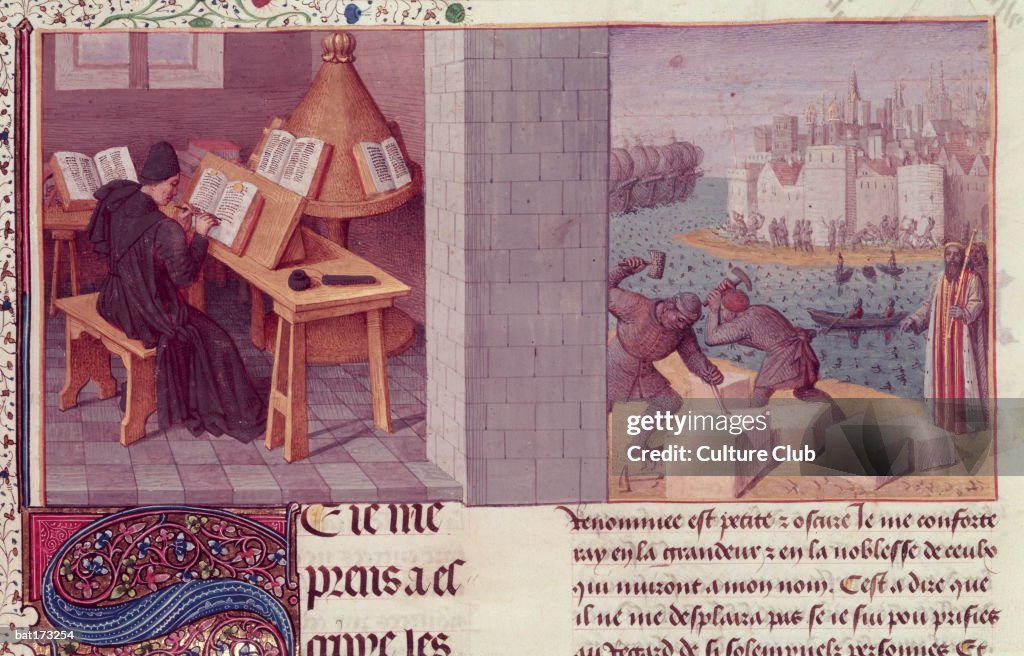 gettyimages®
Credit: Culture Club
SE ie me
prens a es
cripre les
Renommee est petite ⁊ oscure Je me conforte
ray en la grandeur ⁊ en la noblesse de ceulx
qui nuiront a mon nom. Cest a dire que
il ne me desplaira pas se ie sui pou prisies
au regard de si solempnelz personnes Et
bat173254